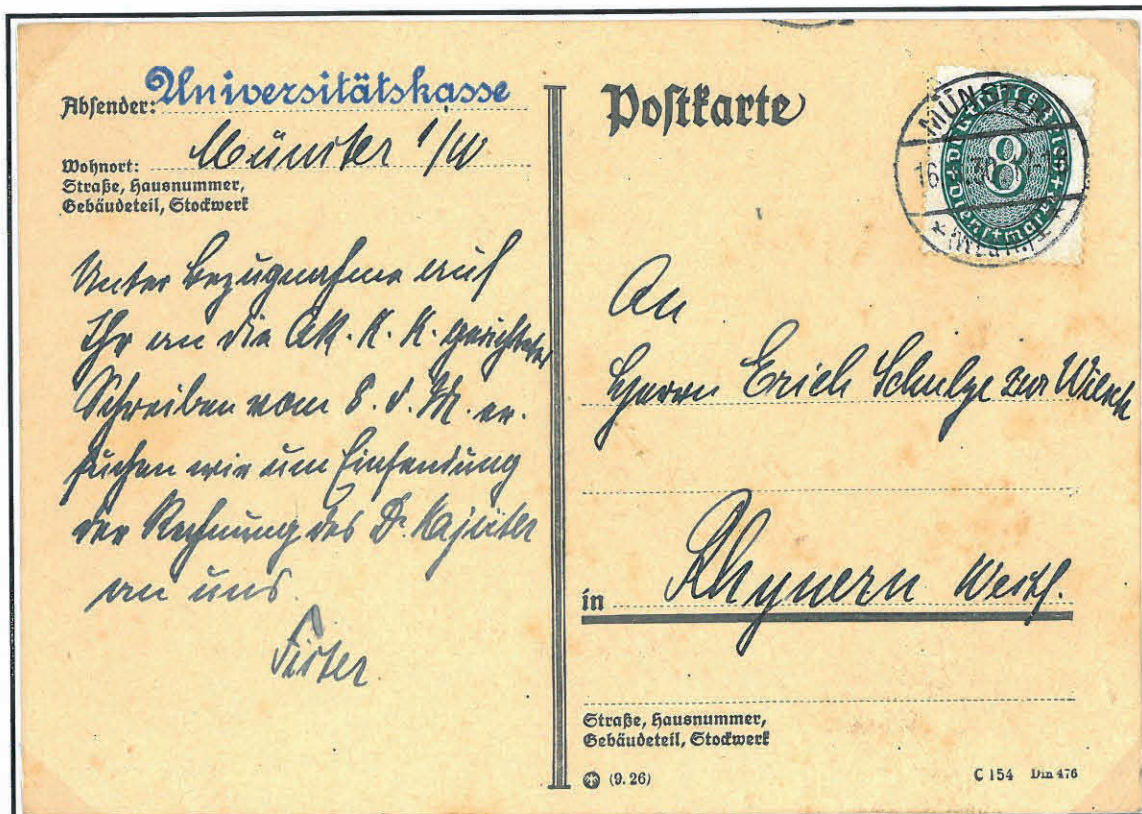 Absender: Universitätskasse
Wohnort: Münster i/W
Straße, Hausnummer,
Gebäudeteil, Stockwerk
Unter Bezugnahme auf
Ihr an die Ak. K. K. gerichtetes
Schreiben vom 8. d. M. er-
suchen wir um Einsendung
der Rechnung des Dr.
an uns.
Postkarte
MÜNSTER
8
Deutsches Reich
Dienstmarke
An
Herrn Erich Schulze zur
in Rhynern Westf.
Straße, Hausnummer,
Gebäudeteil, Stockwerk
(9. 26)
C 154 Din 476